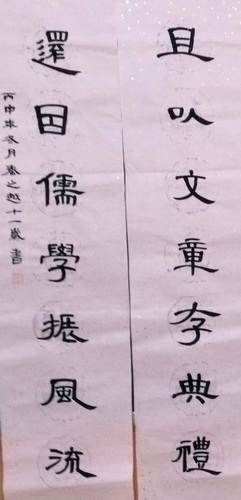 且以文章存典禮
還因儒學振風流
丙申年冬月秦之越十一歲書